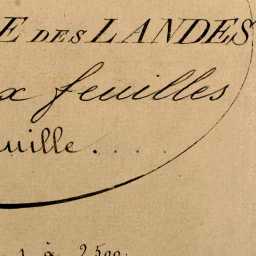 E DES LANDES
x feuilles
uille....
1 à 2500